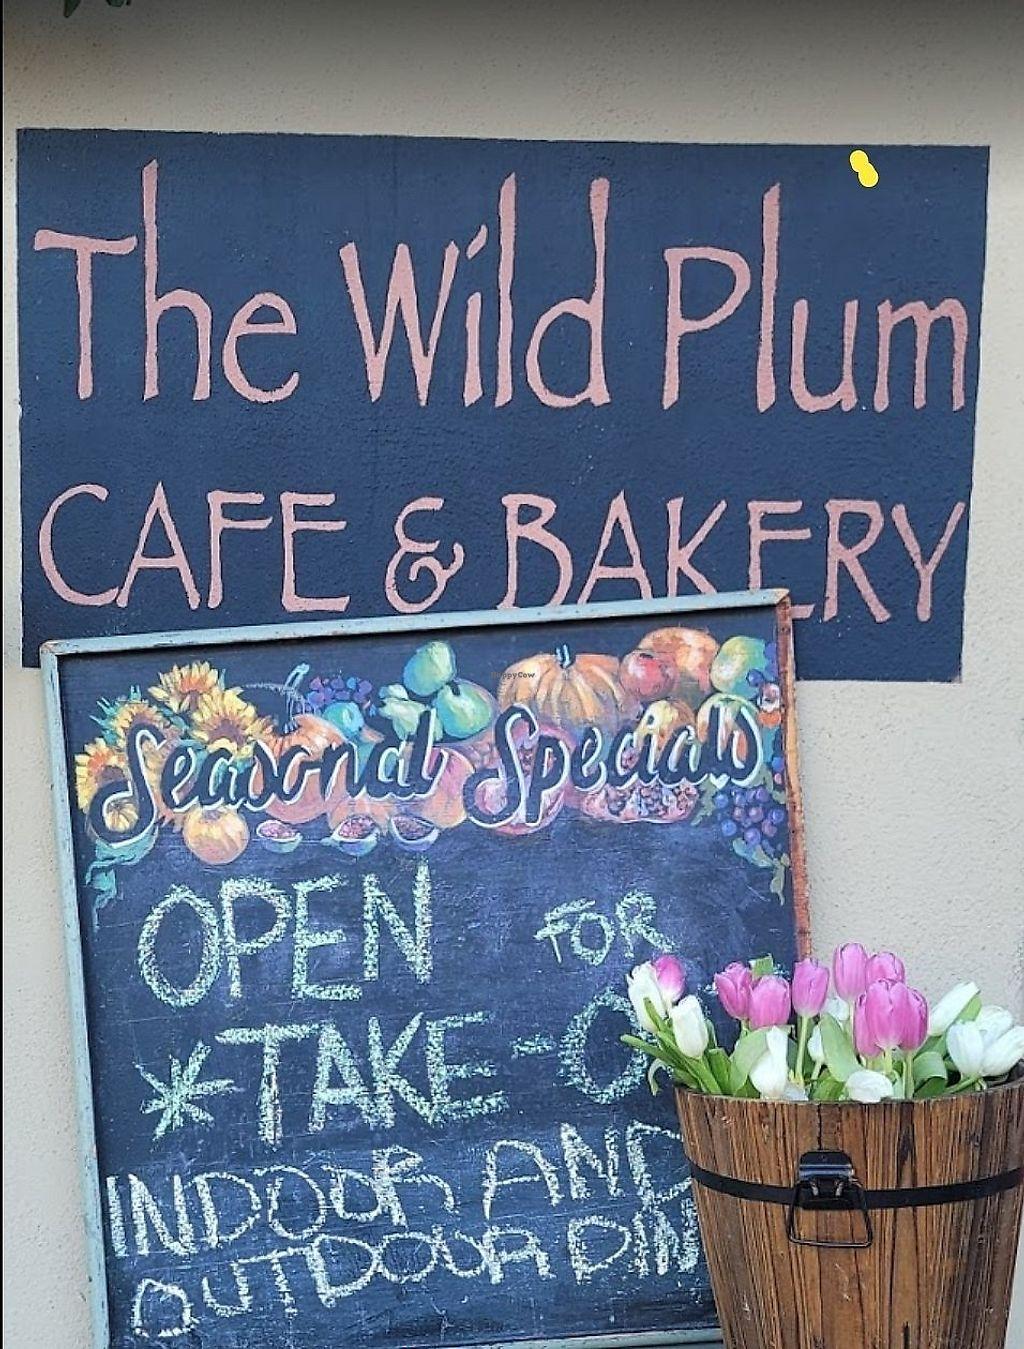 The Wild Plum
CAFE & BAKERY
HappyCow
Seasonal Specials
OPEN FOR
*TAKE-O
INDOOR AND
OUTDOOR DIN